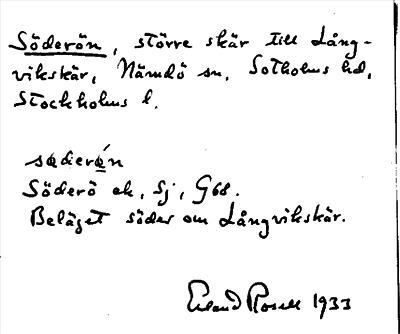 Söderön, större skär till Lång-
vikskär, Nämdö sn, Sotholms hd,
Stockholms l.
söderá̱n
Söderö ek, Sj, G68.
Beläget söder om Långvikskär.
Erland Rosell 1933